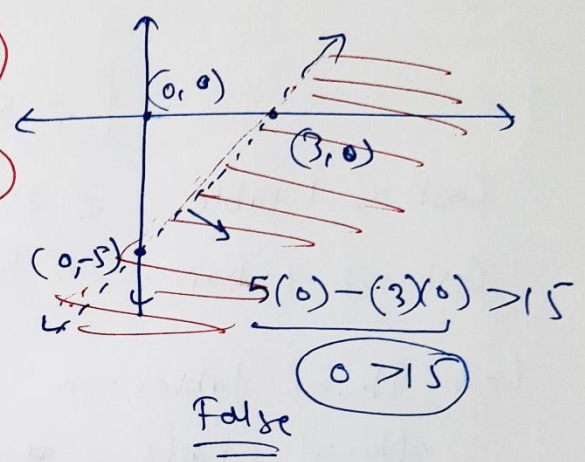 (0, 0)
(3, 0)
(0,-5)
5(0)-(3)(0) >15
0 >15
False